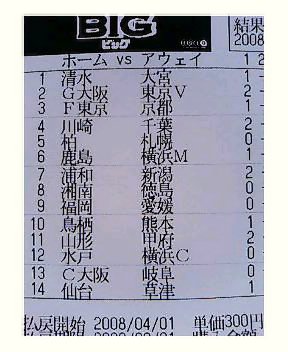 BIG
ビッグ
結果
2008
ホーム vs アウェイ 1 2
1 清水 大宮 1 -
2 G大阪 東京V 2 -
3 F東京 京都 1 -
4 川崎 千葉 2 -
5 柏 札幌 0 -
6 鹿島 横浜M 1 -
7 浦和 新潟 2 -
8 湘南 徳島 0 -
9 福岡 愛媛 0 -
10 鳥栖 熊本 1 -
11 山形 甲府 2 -
12 水戸 横浜C 0 -
13 C大阪 岐阜 0 -
14 仙台 草津 1 -
払戻開始 2008/04/01 単価300円